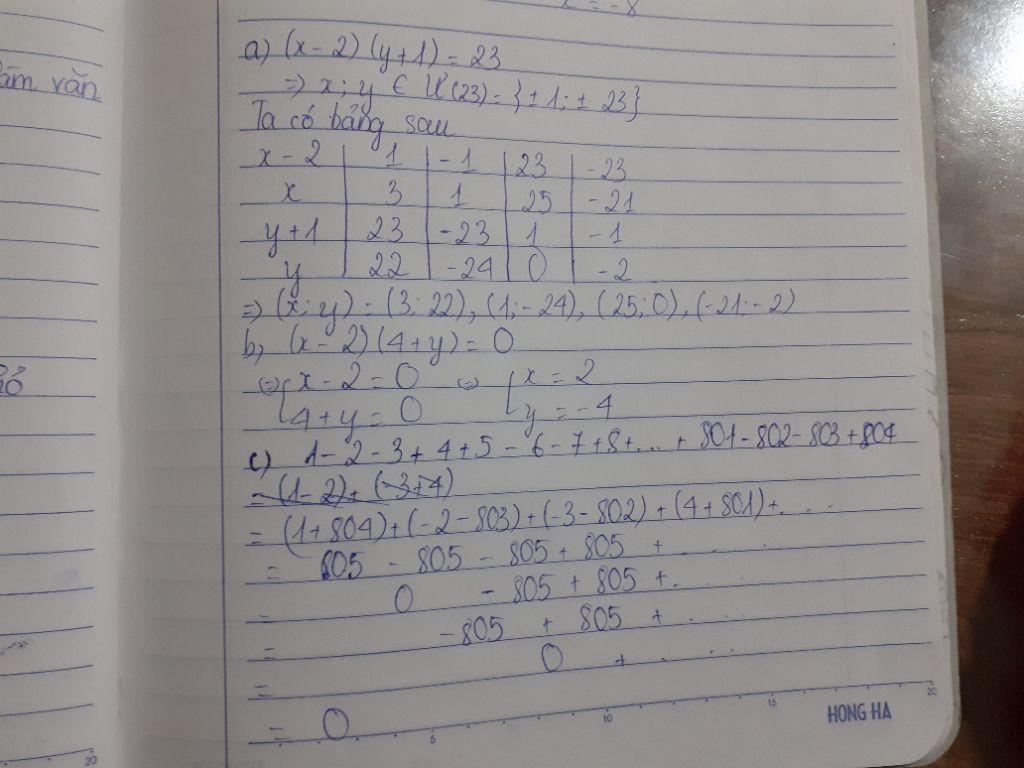 x = -8
a) (x - 2) (y + 1) = 23
=> x; y ∈ Ư(23) = {±1; ± 23}
Ta có bảng sau
x - 2 | 1 | -1 | 23 | -23
x | 3 | 1 | 25 | -21
y + 1 | 23 | -23 | 1 | -1
y | 22 | -24 | 0 | -2
=> (x; y) = (3; 22), (1; -24), (25; 0), (-21; -2)
b, (x - 2) (4 + y) = 0
<=> { x - 2 = 0 <=> { x = 2
4 + y = 0 y = -4
c) 1 - 2 - 3 + 4 + 5 - 6 - 7 + 8 + ... + 801 - 802 - 803 + 804
= (1 - 2) + (-3 + 4)
= (1 + 804) + (-2 - 803) + (-3 - 802) + (4 + 801) + ....
= 805 - 805 - 805 + 805 + ....
= 0 - 805 + 805 + ....
= -805 + 805 + ....
= 0 + ....
= 0
5 10 15 20
HONG HA
văn
20